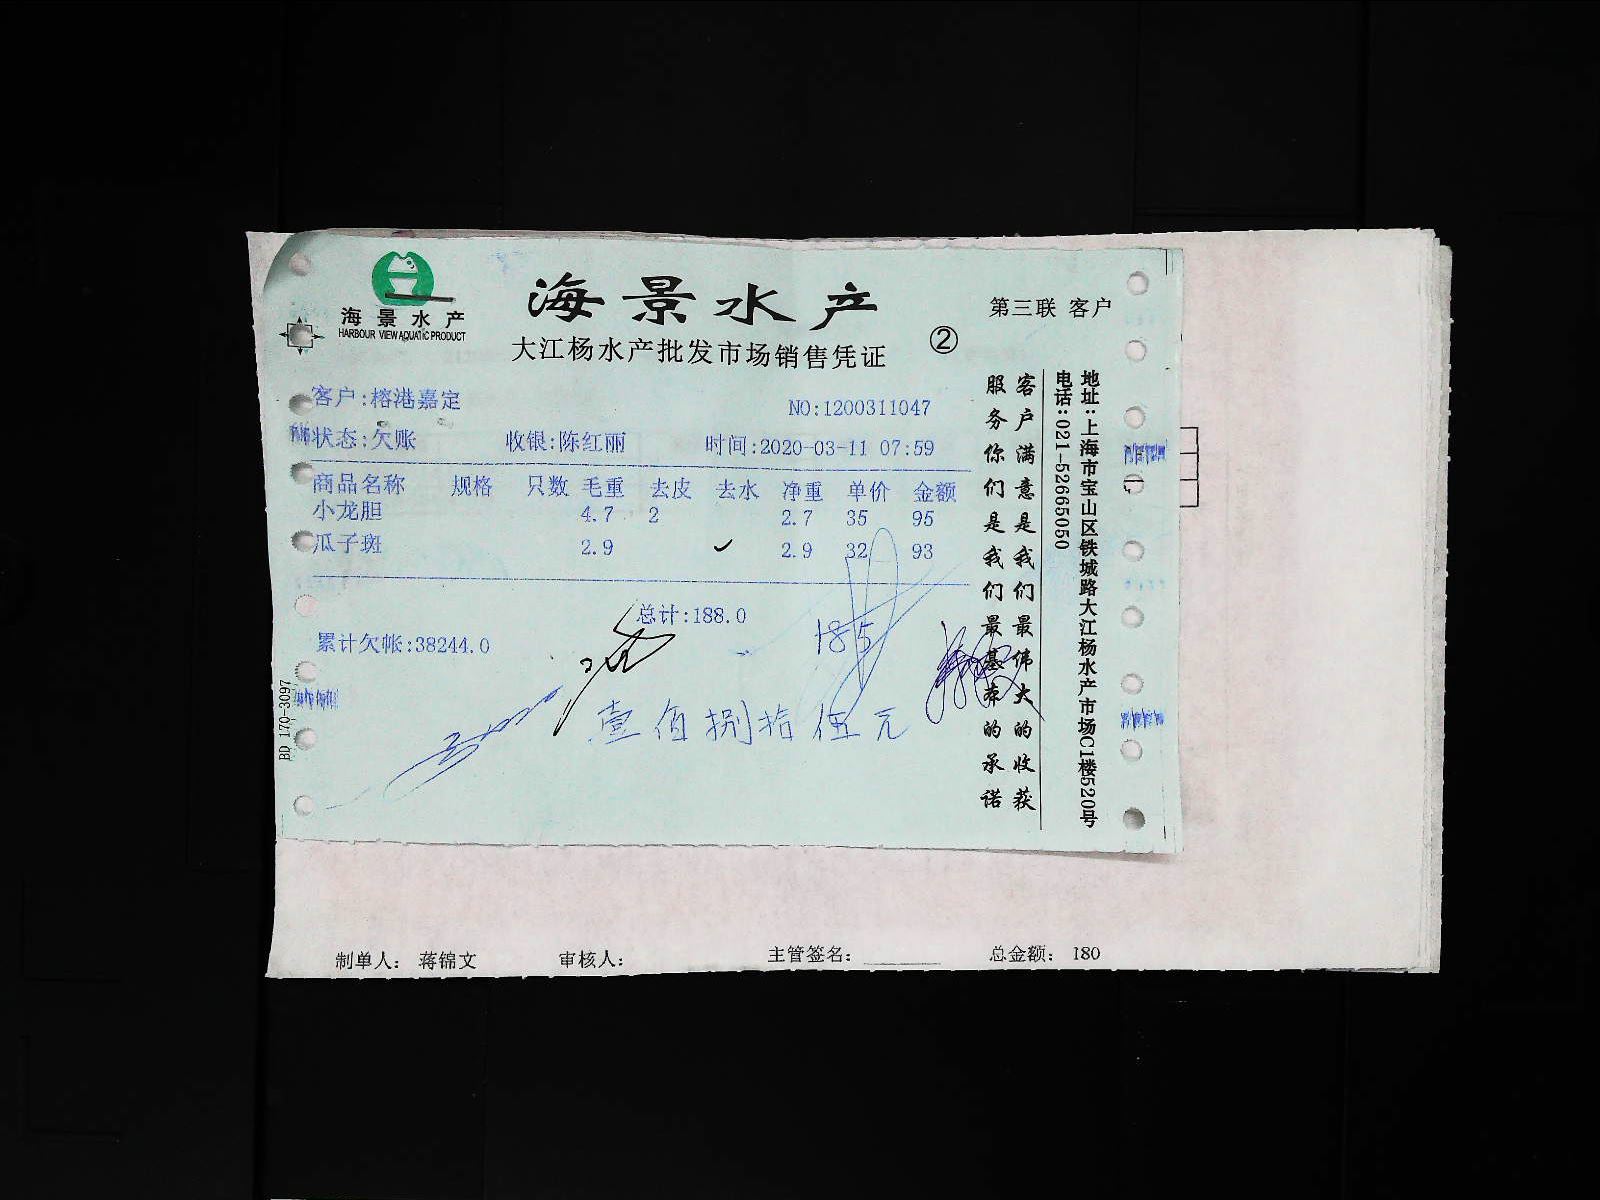 海景水产
HARBOUR VIEW AQUATIC PRODUCT
海景水产
第三联 客户
大江杨水产批发市场销售凭证 ②
客户:榕港嘉定 NO:1200311047
状态:欠账 收银:陈红丽 时间:2020-03-11 07:59
商品名称 规格 只数 毛重 去皮 去水 净重 单价 金额
小龙胆 4.7 2 2.7 35 95
瓜子斑 2.9 2.9 32 93
总计:188.0
累计欠帐:38244.0
185
壹佰捌拾伍元
客户满意是我们最伟大的收获
服务你们是我们最基本的承诺
地址:上海市宝山区铁城路大江杨水产市场C1楼520号
电话:021-52665050
BD 170-3097
制单人: 蒋锦文 审核人: 主管签名: 总金额: 180